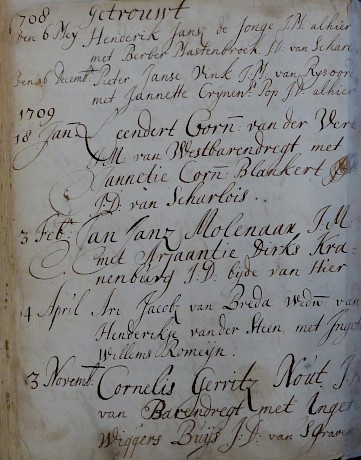 1708 getrouwt
den 6 Mey Henderik Janse de Jonge J.M. alhier
met Berber Mastenbroek J.D. van Scharl
Den 16 Decemb Pieter Janse Vink J.M. van Rysoort
met Jannette Crynens Pop J.D. alhier
1709
18 Jan Leendert Corn van der Vere
J.M. van Westbarendregt met
Jannetie Corn Blankert
J.D. van Scharlois
3 Feb Jan Janz Molenaar J.M
met Arjaantie Dirks Kra-
nenburg J.D. bijde van Hier
4 April Ari Jacobz van Breda Wedn van
Henderikje vander Steen, met
Willems Romeijn.
3 Novemb Cornelis Gerritz Nout J.
van Barendregt met Inget
Wiggers Buijs J.D. van sGraven